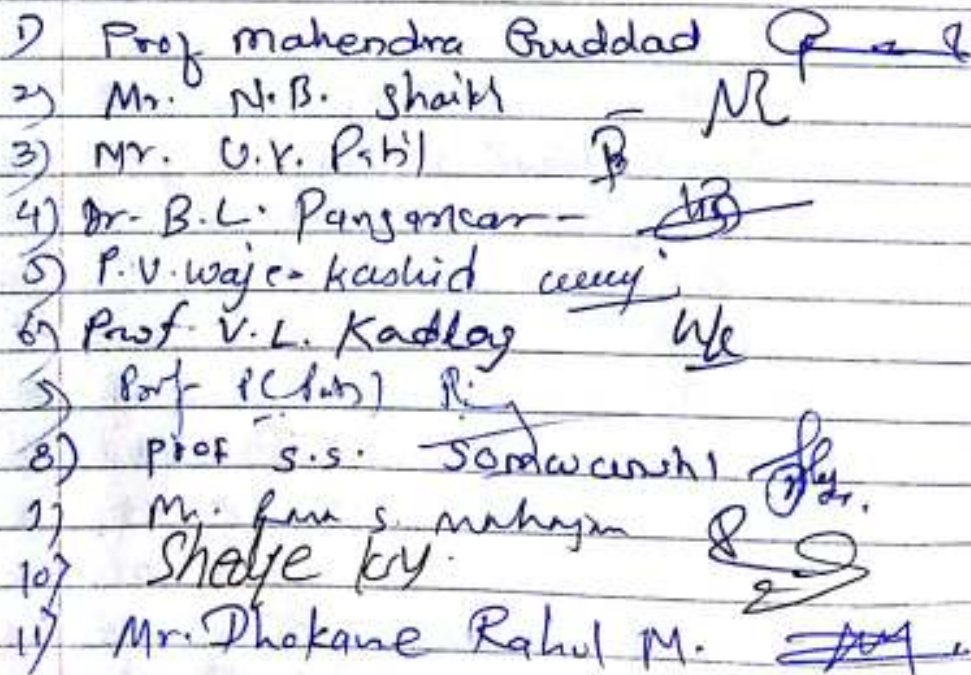 1) Prof Mahendra Guddad
2) Mr. N.B. Shaikh
3) Mr. U.Y. Patil
4) Dr. B.L. Pangarkar -
5) P.V. Waje-Kashid
6) Prof. V.L. Kadlag
Prof
8) Prof S.S. Somawanshi
9) Mr. S. Mahajan
10) Shedye
11) Mr. Dhokane Rahul M.